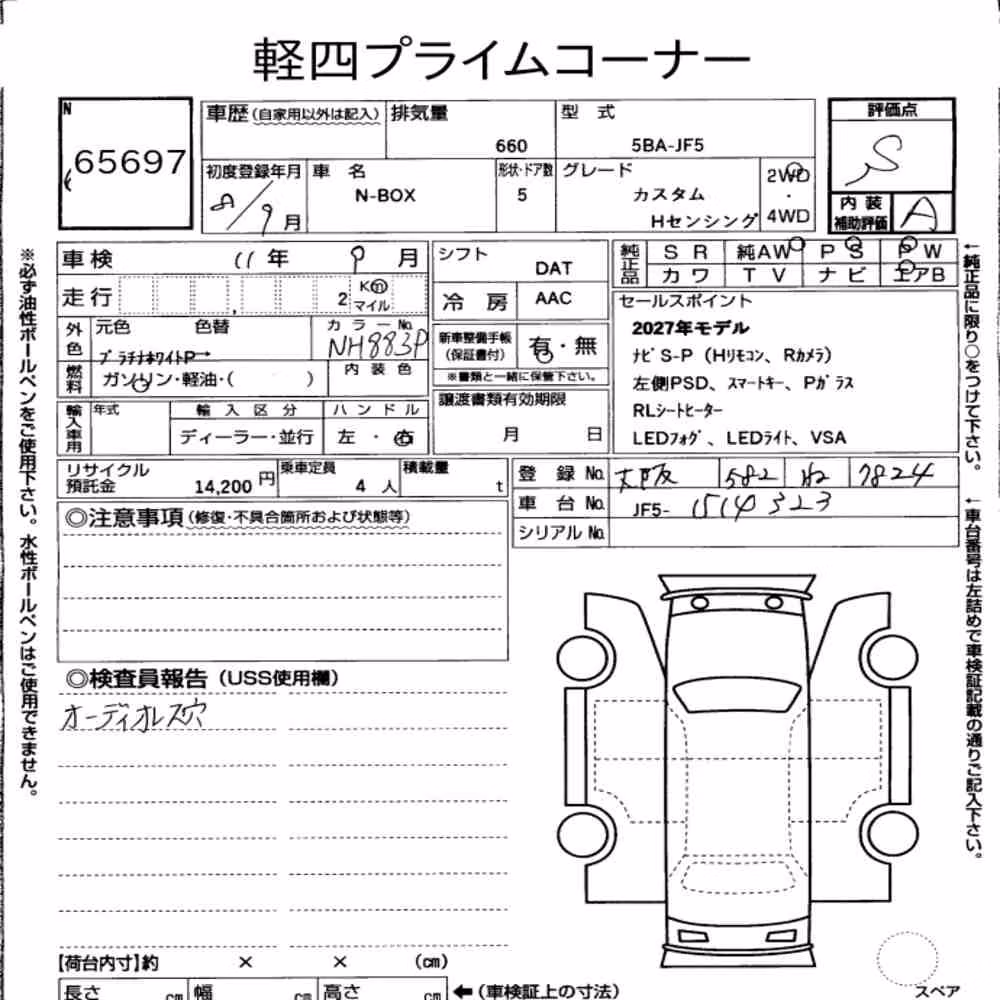 軽四プライムコーナー
N
65697
車歴(自家用以外は記入) 排気量 660
型式 5BA-JF5
評価点 S
初度登録年月 8/9月
車名 N-BOX
形状・ドア数 5
グレード カスタム Hセンシング
2WD・4WD
内装補助評価 A
車検 11年 9月
シフト DAT
純正品 SR 純AW PS PW
カワ TV ナビ エアB
走行 2 Km マイル
冷房 AAC
セールスポイント
2027年モデル
ナビS-P(Hリモコン、Rカメラ)
左側PSD、スマートキー、Pガラス
RLシートヒーター
LEDフォグ、LEDライト、VSA
外色 元色 色替 カラーNo.
プラチナホワイトP→ NH883P
新車整備手帳(保証書付) 有・無
※書類と一緒に保管下さい。
燃料 ガソリン・軽油・( )
内装色
譲渡書類有効期限
月 日
輸入車用 年式 輸入区分 ハンドル
ディーラー・並行 左・右
リサイクル預託金 14,200円
乗車定員 4人
積載量 t
登録No. 大阪 582 ね 7824
車台No. JF5-1514323
シリアルNo.
◎注意事項(修復・不具合箇所および状態等)
◎検査員報告(USS使用欄)
オーディオレス穴
【荷台内寸】約 × × (cm)
長さ cm 幅 cm 高さ cm ←(車検証上の寸法)
スペア
※必ず油性ボールペンをご使用下さい。水性ボールペンはご使用できません。
←純正品に限り○をつけて下さい。
←車台番号は左詰めで車検証記載の通りご記入下さい。